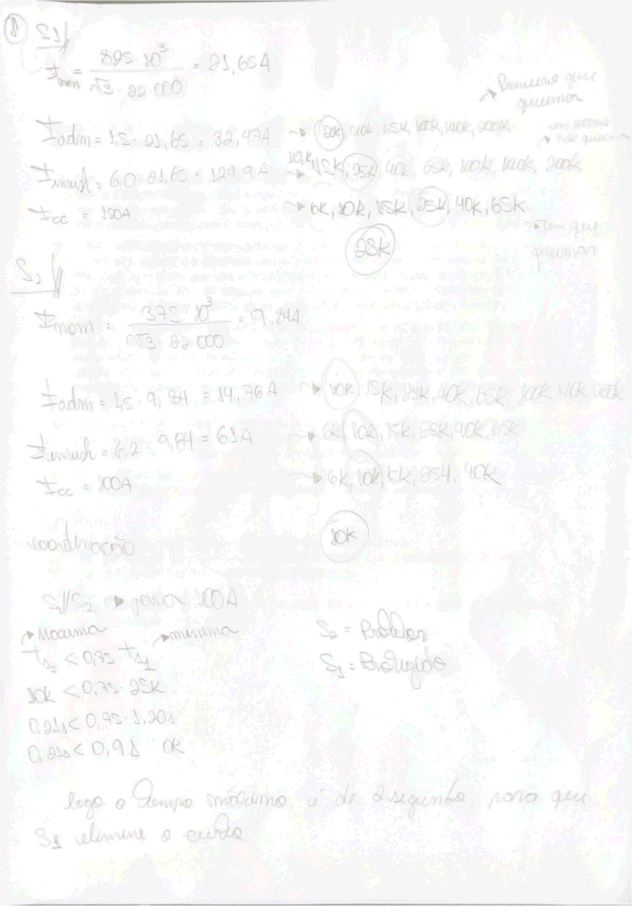 ① S1//
Inom = 825·10³ / √3·22 000 = 21,65A
Iadm = 1,5·21,65 = 32,47A → 20K, 40K, 65K, 100K, 140K, 200K
Iinrush = 6.0·21,65 = 129,9A → 10K, 15K, 25K, 40K, 65K, 100K, 140K, 200K
Icc = 150A → 6K, 10K, 15K, 25K, 40K, 65K
25K
S2//
Inom = 375·10³ / √3·22 000 = 9,84A
Iadm = 1,5·9,84 = 14,76A → 10K, 15K, 25K, 40K, 65K, 100K, 140K, 200K
Iinrush = 6.2·9,84 = 61A → 6K, 10K, 15K, 25K, 40K, 65K
Icc = 100A → 6K, 10K, 15K, 254, 40K
10K
coordenação
S1//S2 → para 100A
→ Maxima → minima
tS2 < 0,75 tS1
10K < 0,75·25K
0,21s < 0,75·1,20s
0,21s < 0,91 OK
S2 = Protetor
S1 = Protegido
logo o tempo máximo é de 2 segundo, para que
S1 elimine o curto